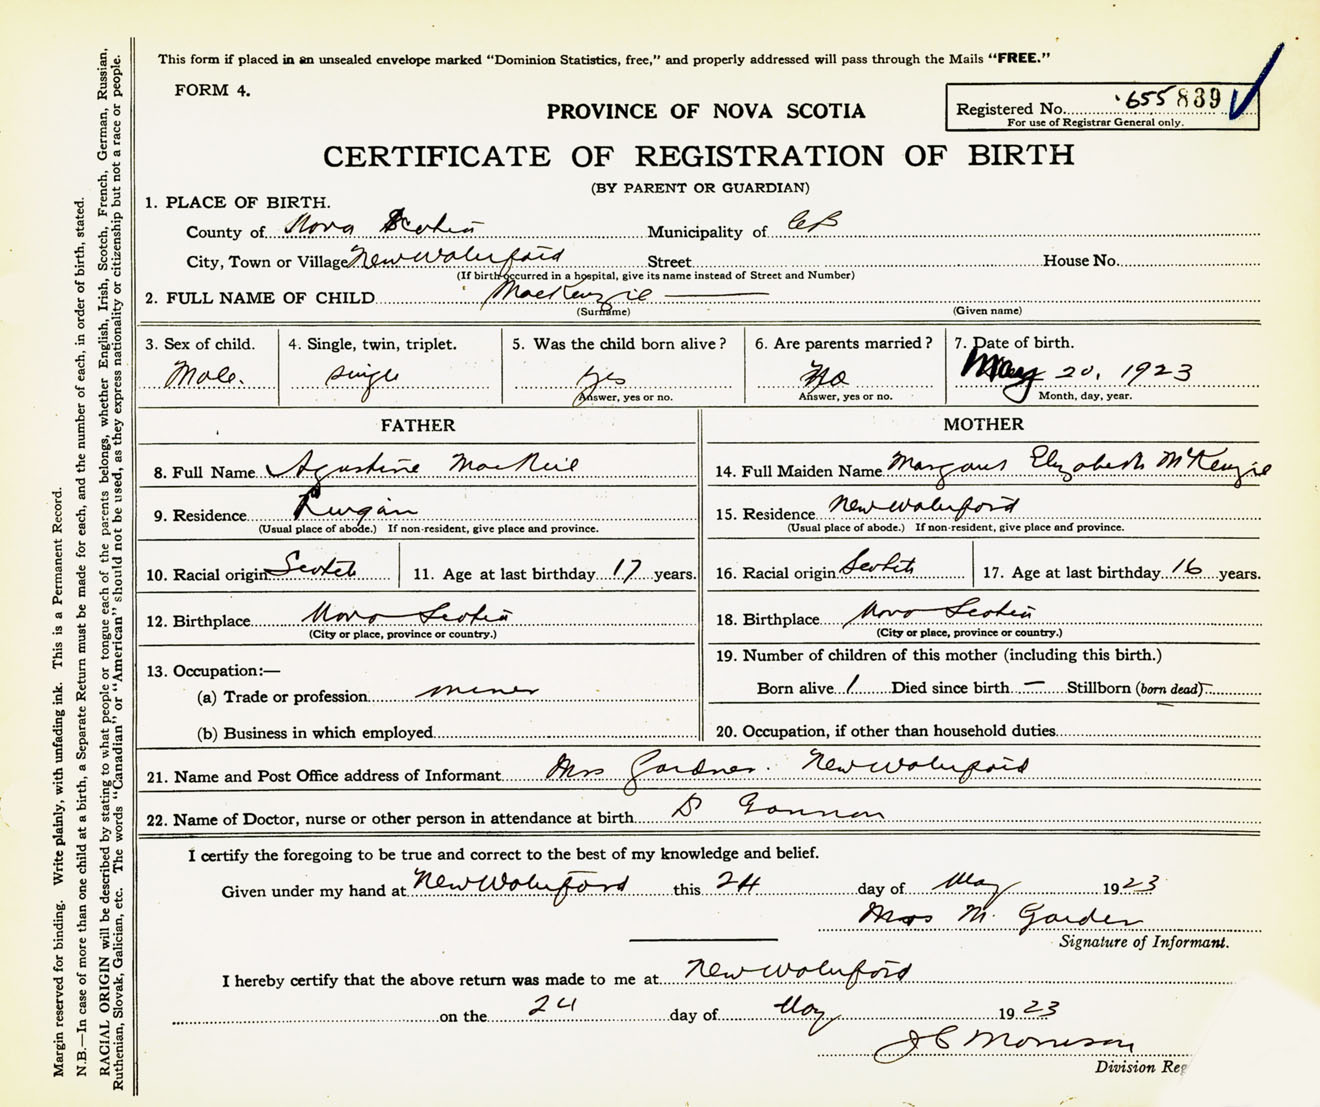 This form if placed in an unsealed envelope marked "Dominion Statistics, free," and properly addressed will pass through the Mails "FREE."
FORM 4.
PROVINCE OF NOVA SCOTIA
Registered No. 655839
For use of Registrar General only.
CERTIFICATE OF REGISTRATION OF BIRTH
(BY PARENT OR GUARDIAN)
1. PLACE OF BIRTH.
County of Nova Scotia Municipality of CB
City, Town or Village New Waterford Street House No.
(If birth occurred in a hospital, give its name instead of Street and Number)
2. FULL NAME OF CHILD MacKenzie —
(Surname) (Given name)
3. Sex of child. 4. Single, twin, triplet. 5. Was the child born alive? 6. Are parents married? 7. Date of birth.
Male. single yes No May 20, 1923
Answer, yes or no. Answer, yes or no. Month, day, year.
FATHER MOTHER
8. Full Name Agustine MacNeil 14. Full Maiden Name Margaret Elizabeth McKenzie
9. Residence 15. Residence New Waterford
(Usual place of abode.) If non-resident, give place and province. (Usual place of abode.) If non-resident, give place and province.
10. Racial origin Scotch 11. Age at last birthday 17 years. 16. Racial origin Scotch 17. Age at last birthday 16 years.
12. Birthplace Nova Scotia 18. Birthplace Nova Scotia
(City or place, province or country.) (City or place, province or country.)
13. Occupation:— 19. Number of children of this mother (including this birth.)
(a) Trade or profession miner Born alive 1 Died since birth — Stillborn (born dead) —
(b) Business in which employed 20. Occupation, if other than household duties
21. Name and Post Office address of Informant Mrs Gardner. New Waterford
22. Name of Doctor, nurse or other person in attendance at birth D Gannon
I certify the foregoing to be true and correct to the best of my knowledge and belief.
Given under my hand at New Waterford this 24 day of May 1923
Mrs M. Garden
Signature of Informant.
I hereby certify that the above return was made to me at New Waterford
on the 24 day of May 1923
J C Morrison
Division Reg
Margin reserved for binding. Write plainly, with unfading ink. This is a Permanent Record.
N.B.—In case of more than one child at a birth, a Separate Return must be made for each, and the number of each, in order of birth, stated.
RACIAL ORIGIN will be described by stating to what people or tongue each of the parents belongs, whether English, Irish, Scotch, French, German, Russian,
Ruthenian, Slovak, Galician, etc. The words "Canadian" or "American" should not be used, as they express nationality or citizenship but not a race or people.